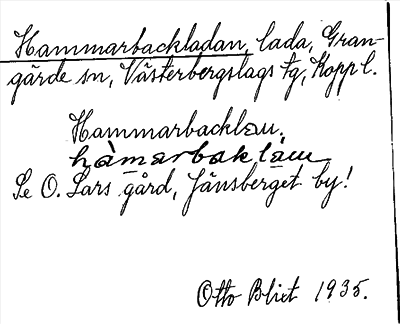 Hammarbackladan, lada, Gran-
gärde sn, Västerbergslags tg, Kopp l.
Hammarbacklau.
hàmarbakláuu
Se O. Lars gård, Jänsberget by!
Otto Blixt 1935.